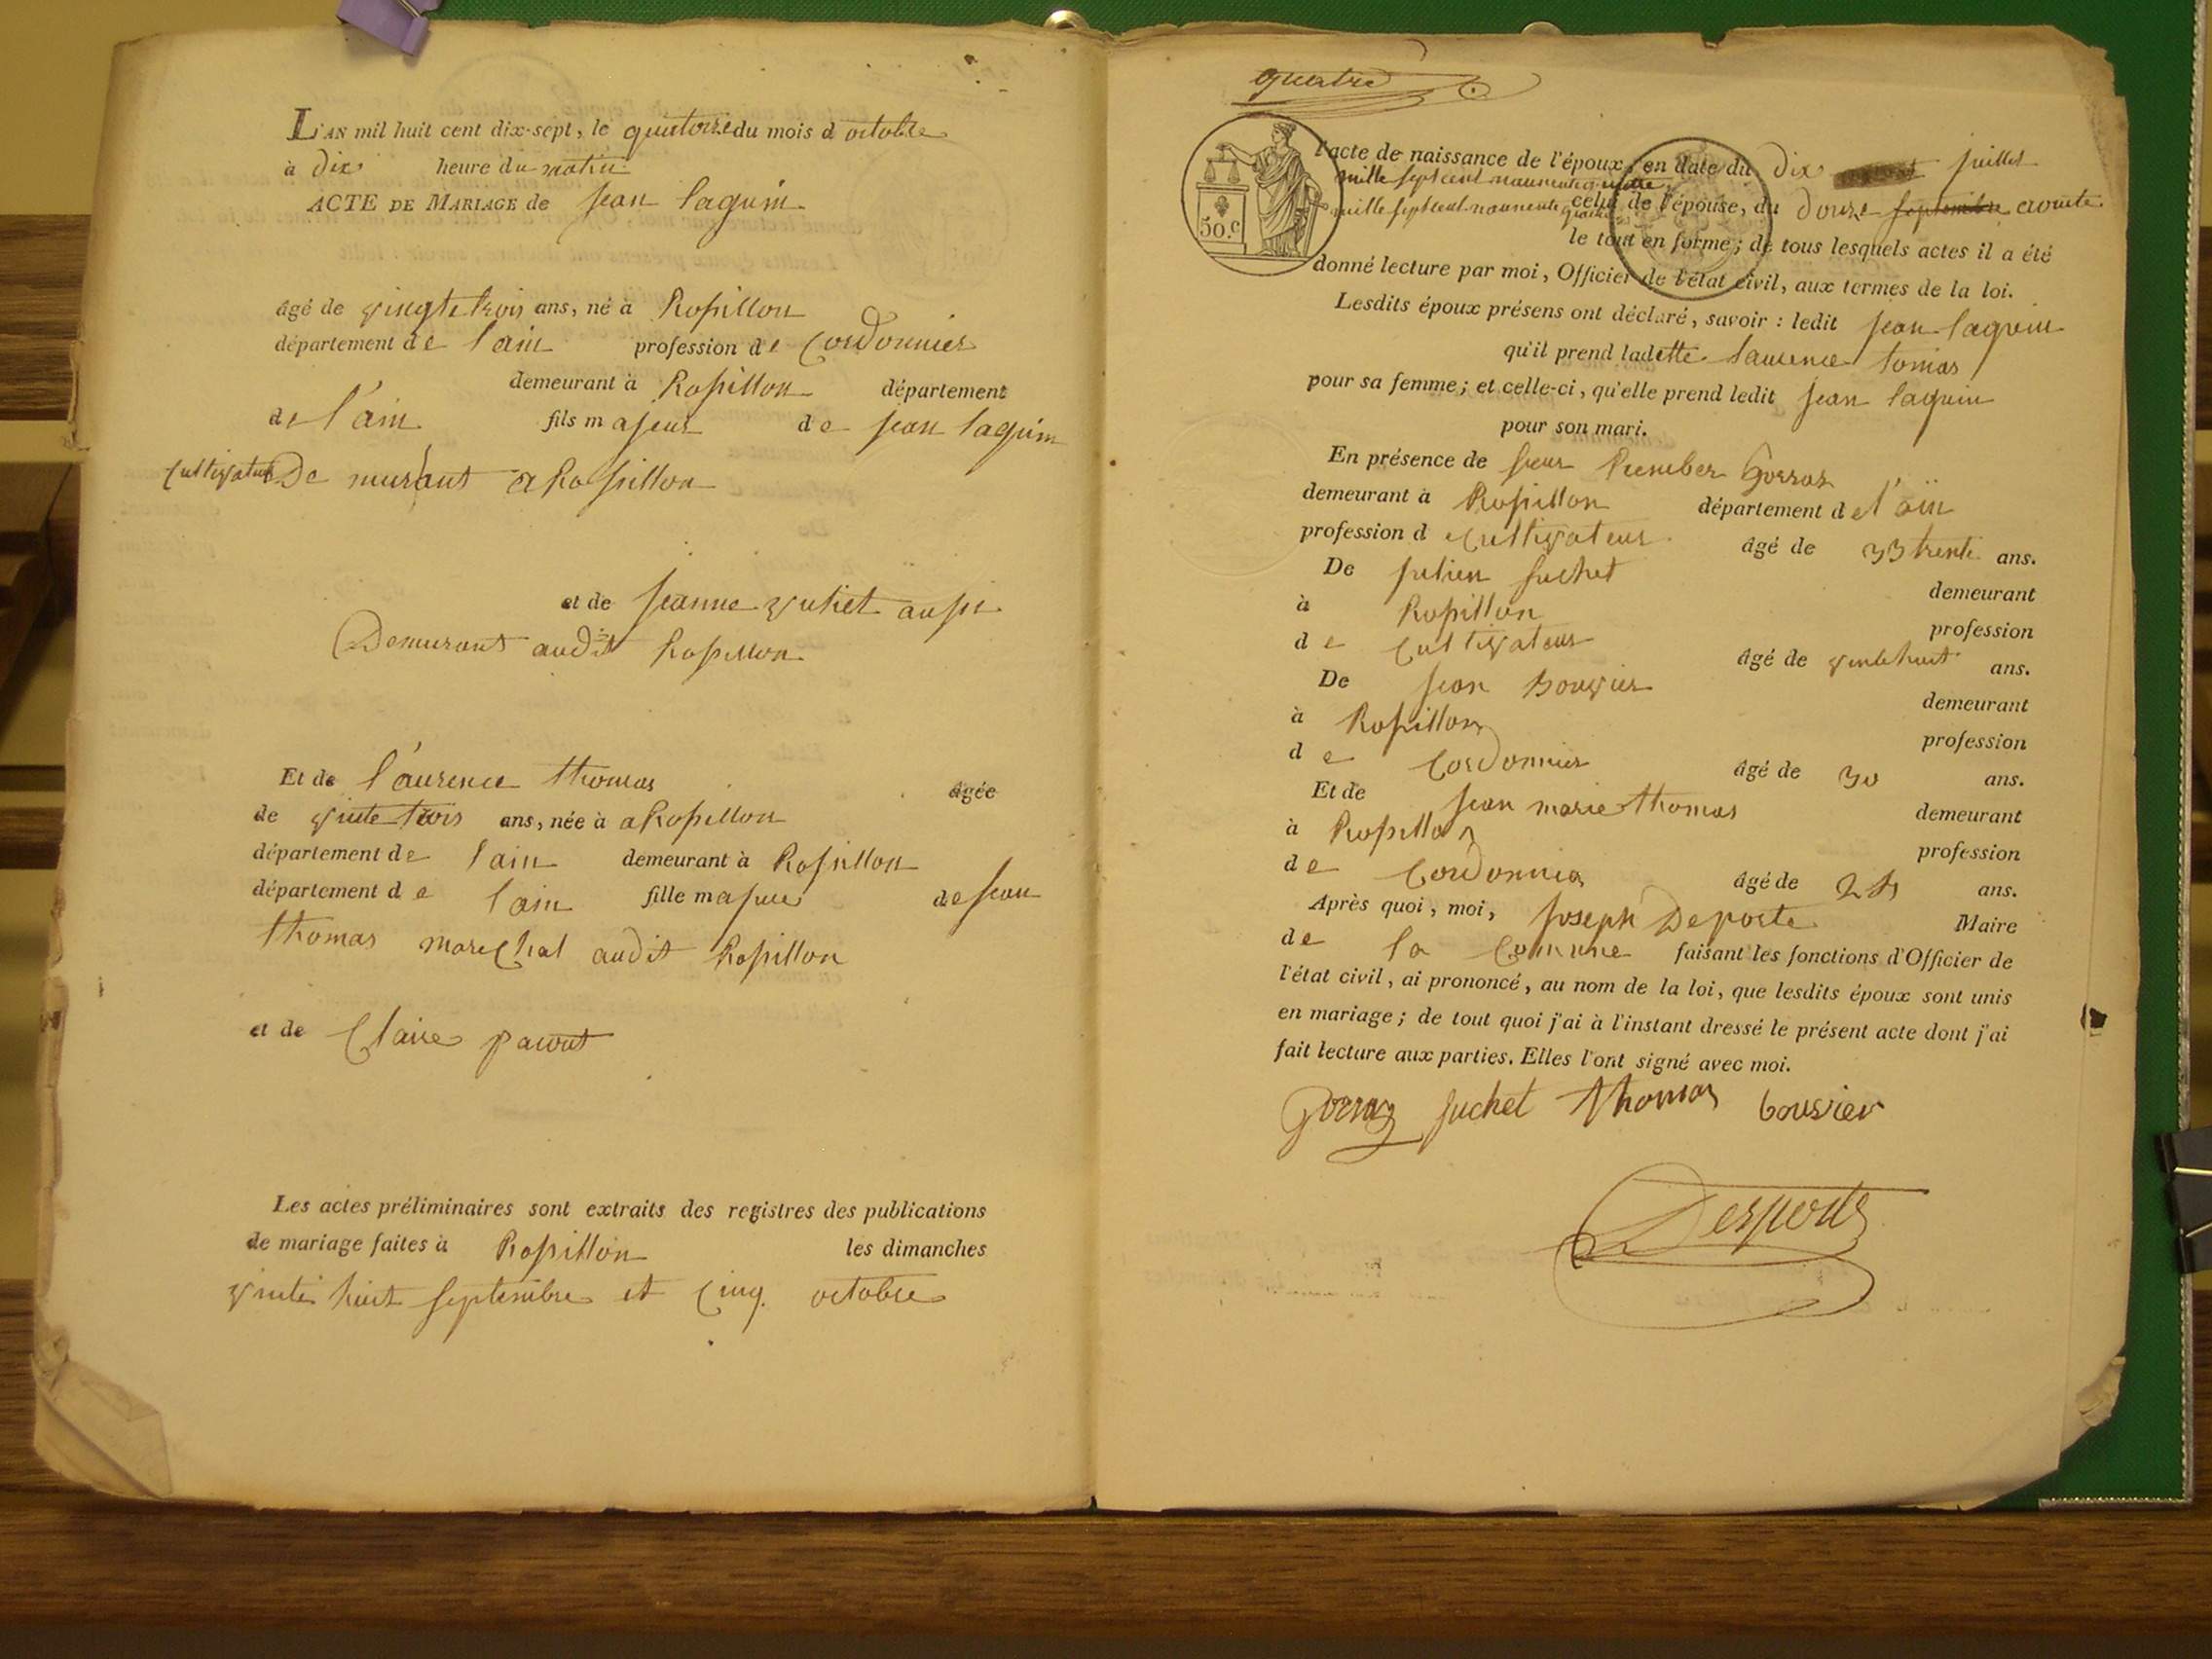 L'AN mil huit cent dix-sept, le quatorze du mois d octobre
à dix heure du matin
ACTE DE MARIAGE de jean laguin
âgé de vingte trois ans, né à Rossillon
département de l'ain profession de Cordonnier
demeurant à Rossillon département
de l'ain fils majeur de jean laguin
Cultivateur De murant a Rossillon
et de jeanne juhet aussi
Demurant audit Rossillon
Et de l'aurence thomas âgée
de vinte trois ans, née à a Rossillon
département de l'ain demeurant à Rossillon
département de l'ain fille majeure de jean
thomas marechal audit Rossillon
et de Claire
Les actes préliminaires sont extraits des registres des publications
de mariage faites à Rossillon les dimanches
vinte huit septembre et Cinq octobre
quatre
50.c
l'acte de naissance de l'époux, en date du dix juillet
mille sept cent nounente quatre
mille sept cent nounente quatre celui de l'épouse, du douze septembre
le tout en forme; de tous lesquels actes il a été
donné lecture par moi, Officier de l'état civil, aux termes de la loi.
Lesdits époux présens ont déclaré, savoir : ledit jean laguin
qu'il prend ladette laurence tomas
pour sa femme; et celle-ci, qu'elle prend ledit jean laguin
pour son mari.
En présence de sieur
demeurant à Rossillon département de l'ain
profession d e Cultivateur âgé de 33 trente ans.
De julien juchet
demeurant
à Rossillon
profession
d e Cultivateur âgé de vintehuit ans.
De jean Bouvier
demeurant
à Rossillon
profession
d e Cordonnier âgé de 30 ans.
Et de jean marie thomas
demeurant
à Rossillon
profession
d e Cordonnier âgé de ans.
Après quoi, moi, joseph Deporte Maire
de la Comune faisant les fonctions d'Officier de
l'état civil, ai prononcé, au nom de la loi, que lesdits époux sont unis
en mariage; de tout quoi j'ai à l'instant dressé le présent acte dont j'ai
fait lecture aux parties. Elles l'ont signé avec moi.
juchet thomas bouvier
Desporte